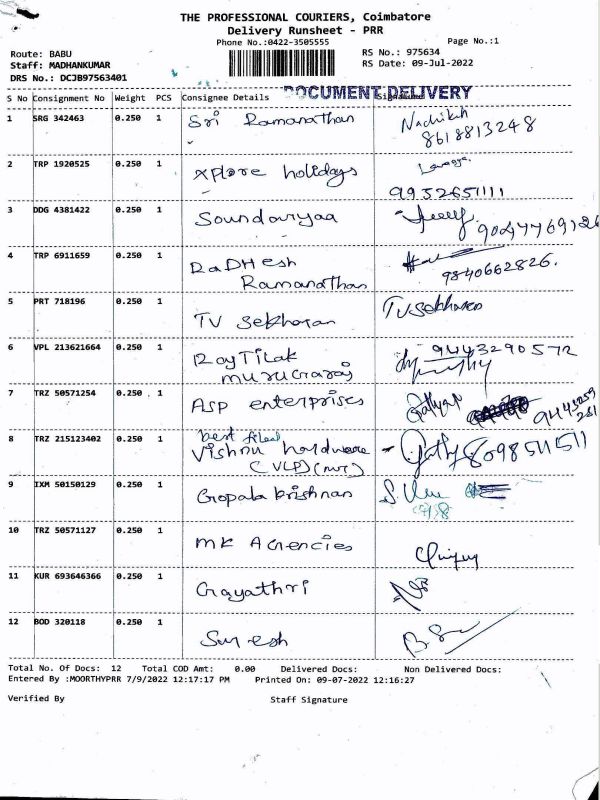 THE PROFESSIONAL COURIERS, Coimbatore
Delivery Runsheet - PRR
Phone No.:0422-3505555
Page No.:1
Route: BABU
RS No.: 975634
Staff: MADHANKUMAR
RS Date: 09-Jul-2022
DRS No.: DCJB97563401
DOCUMENT DELIVERY
S No Consignment No Weight PCS Consignee Details
1 SRG 342463 0.250 1 Sri Ramanathan Nachiket
8618813248
2 TRP 1920525 0.250 1 Xplore holidays
9952651111
3 DDG 4381422 0.250 1 Soundaryaa
4 TRP 6911659 0.250 1 RaDHesh
Ramanathan 9840662826.
5 PRT 718196 0.250 1 TV Sekharan TV Sekharan
6 VPL 213621664 0.250 1 RayTilak 9443290572
murugaraj
7 TRZ 50571254 0.250 1 ASP enterprises
8 TRZ 215123402 0.250 1 Vishnu hardware 8098511511
9 IXM 50150129 0.250 1 Gopala krishnan
10 TRZ 50571127 0.250 1 MK Agencies
11 KUR 693646366 0.250 1 Gayathri
12 BOD 320118 0.250 1 Suresh
Total No. Of Docs: 12 Total COD Amt: 0.00 Delivered Docs: Non Delivered Docs:
Entered By :MOORTHYPRR 7/9/2022 12:17:17 PM Printed On: 09-07-2022 12:16:27
Verified By Staff Signature